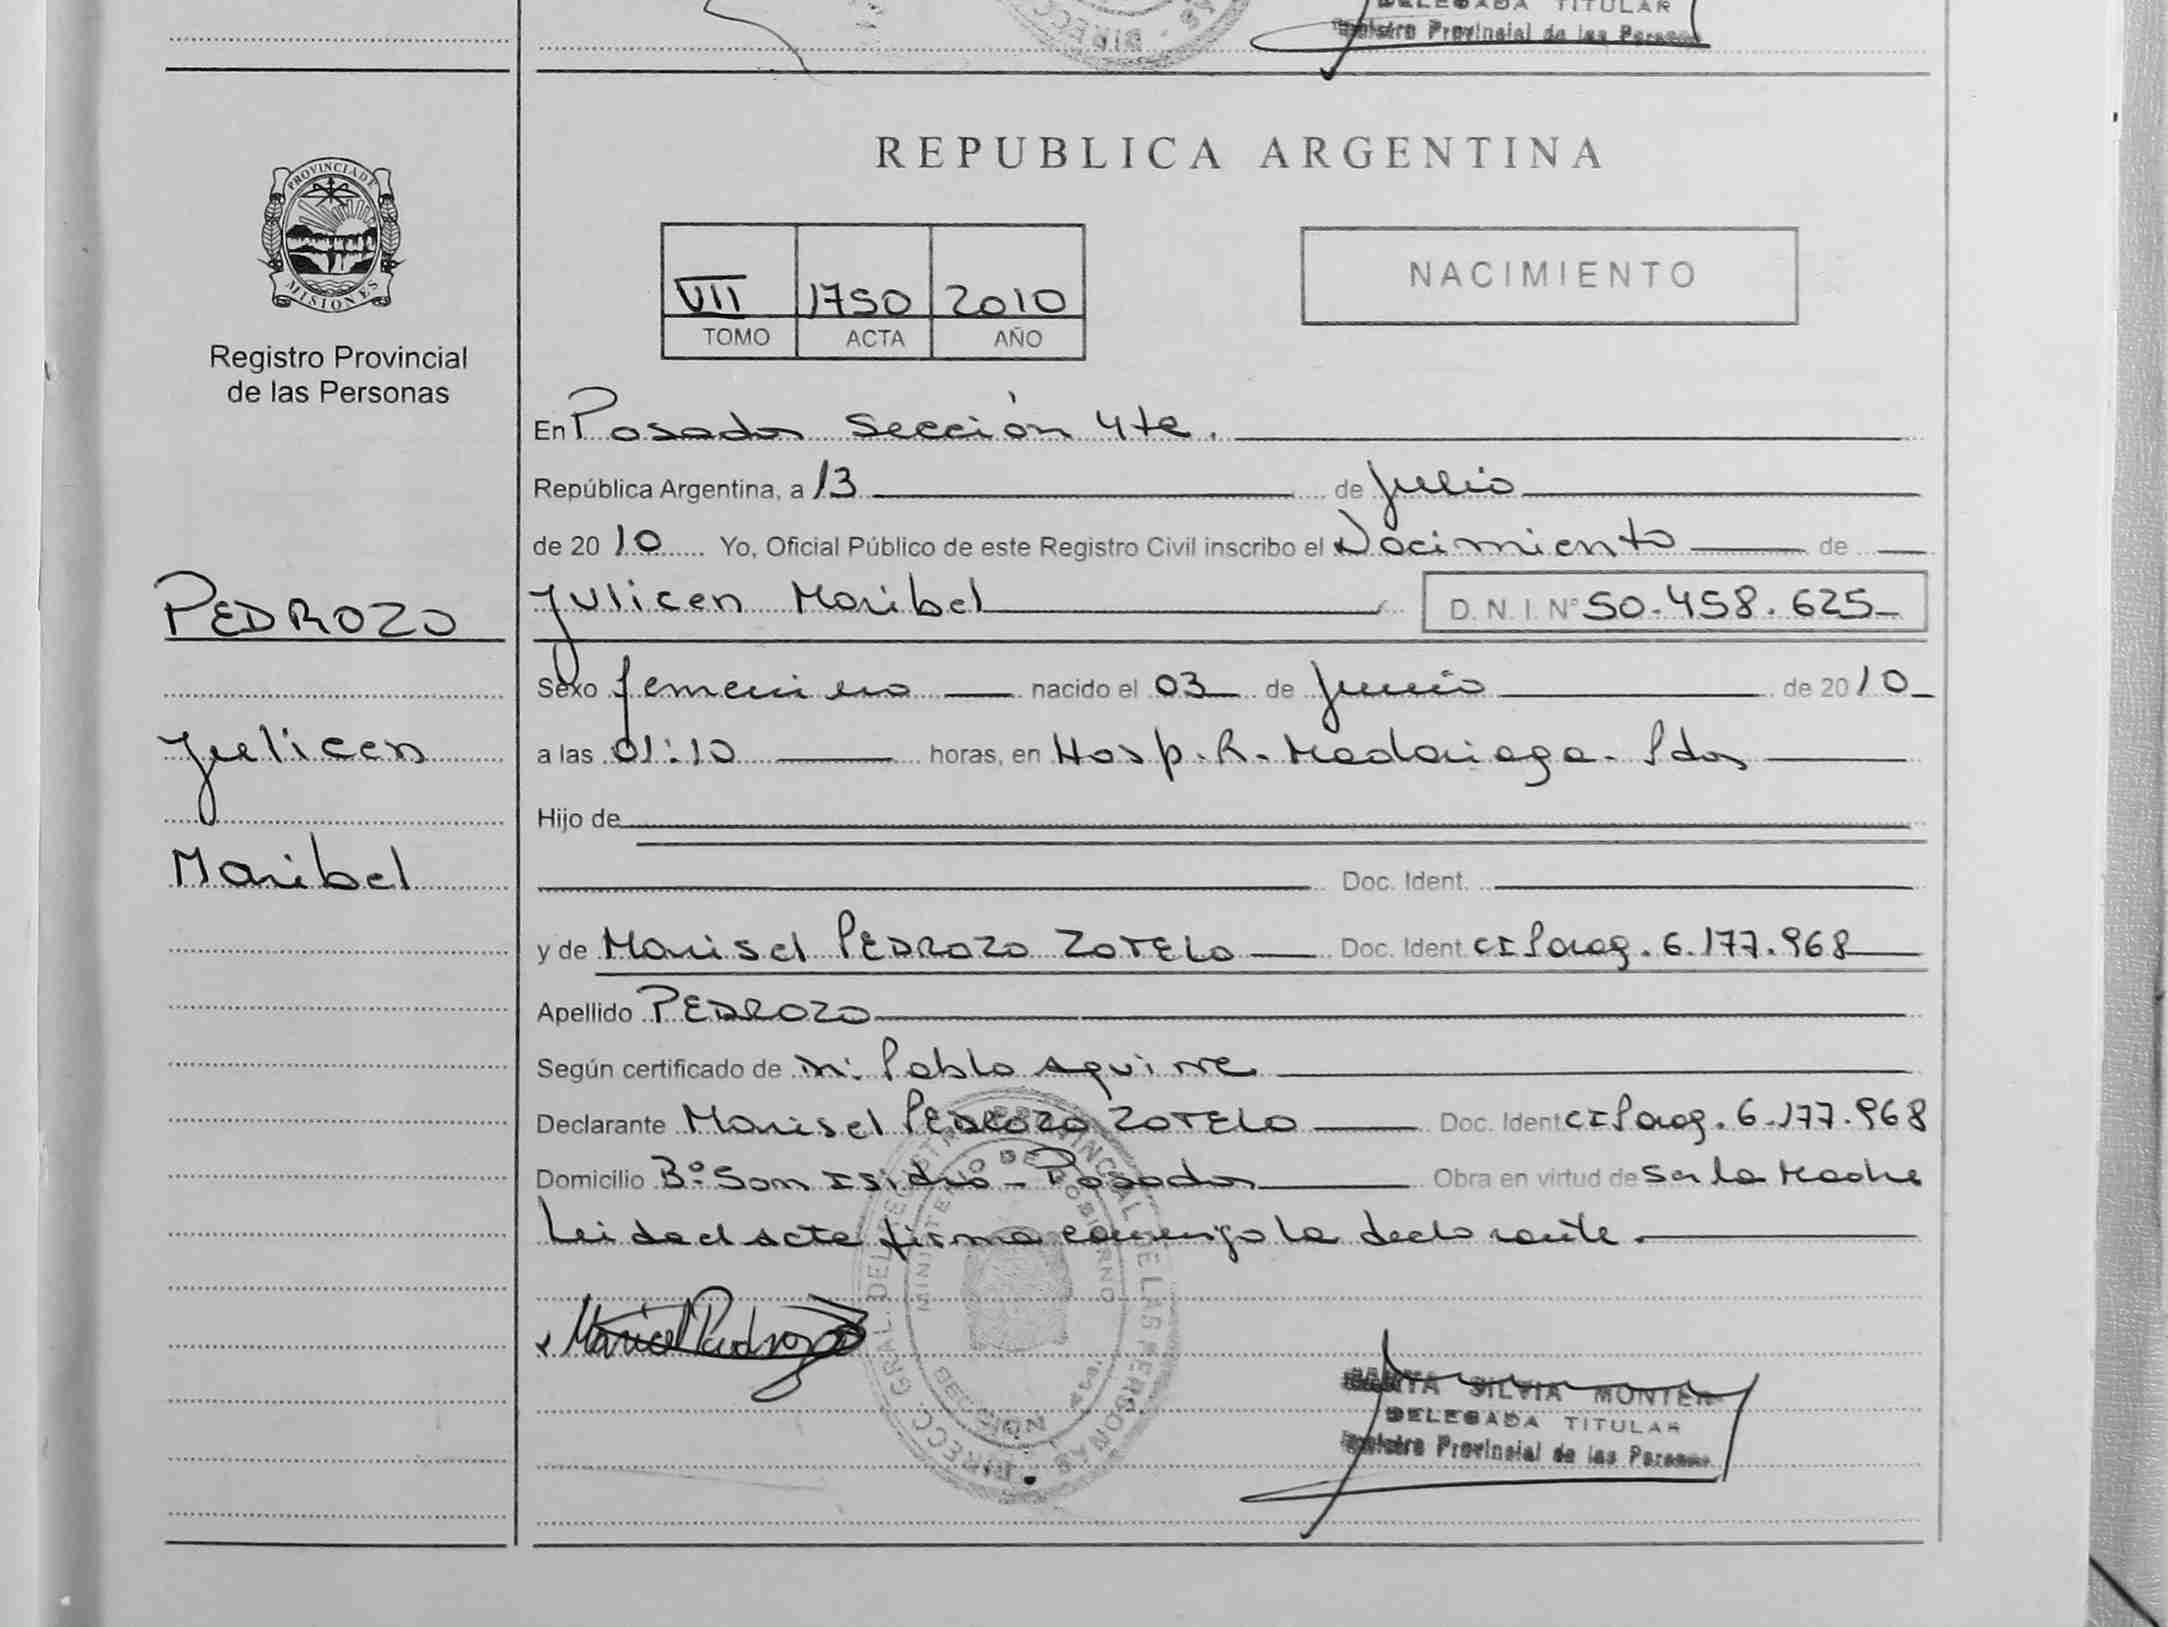 DELEGADA TITULAR
Registro Provincial de las Personas
PROVINCIA DE
MISIONES
Registro Provincial
de las Personas
REPUBLICA ARGENTINA
VII 1750 2010
TOMO ACTA AÑO
NACIMIENTO
En Posadas Sección 4ta.
República Argentina, a 13 de Julio
de 2010 Yo, Oficial Público de este Registro Civil inscribo el Nacimiento de
PEDROZO
Julicen Maribel D. N. I. Nº 50.458.625
Sexo femenino nacido el 03 de Junio de 2010
Julicen
a las 01:10 horas, en Hosp. R. Madariaga. Pdas
Hijo de
Maribel
Doc. Ident.
y de Marisel PEDROZO ZOTELO Doc. Ident. CI Parag. 6.177.968
Apellido PEDROZO
Según certificado de Pablo Aguirre
Declarante Marisel PEDROZO ZOTELO Doc. Ident CI Parag. 6.177.968
Domicilio Bº San Isidro - Posadas Obra en virtud de Ser la Madre
Leida el acta firma conmigo la declarante.
DIRECC. GRAL. DEL REGISTRO PROVINCIAL DE LAS PERSONAS
MINISTERIO DE GOBIERNO
Maricel Pedrozo
SILVIA MONTER
DELEGADA TITULAR
Registro Provincial de las Personas